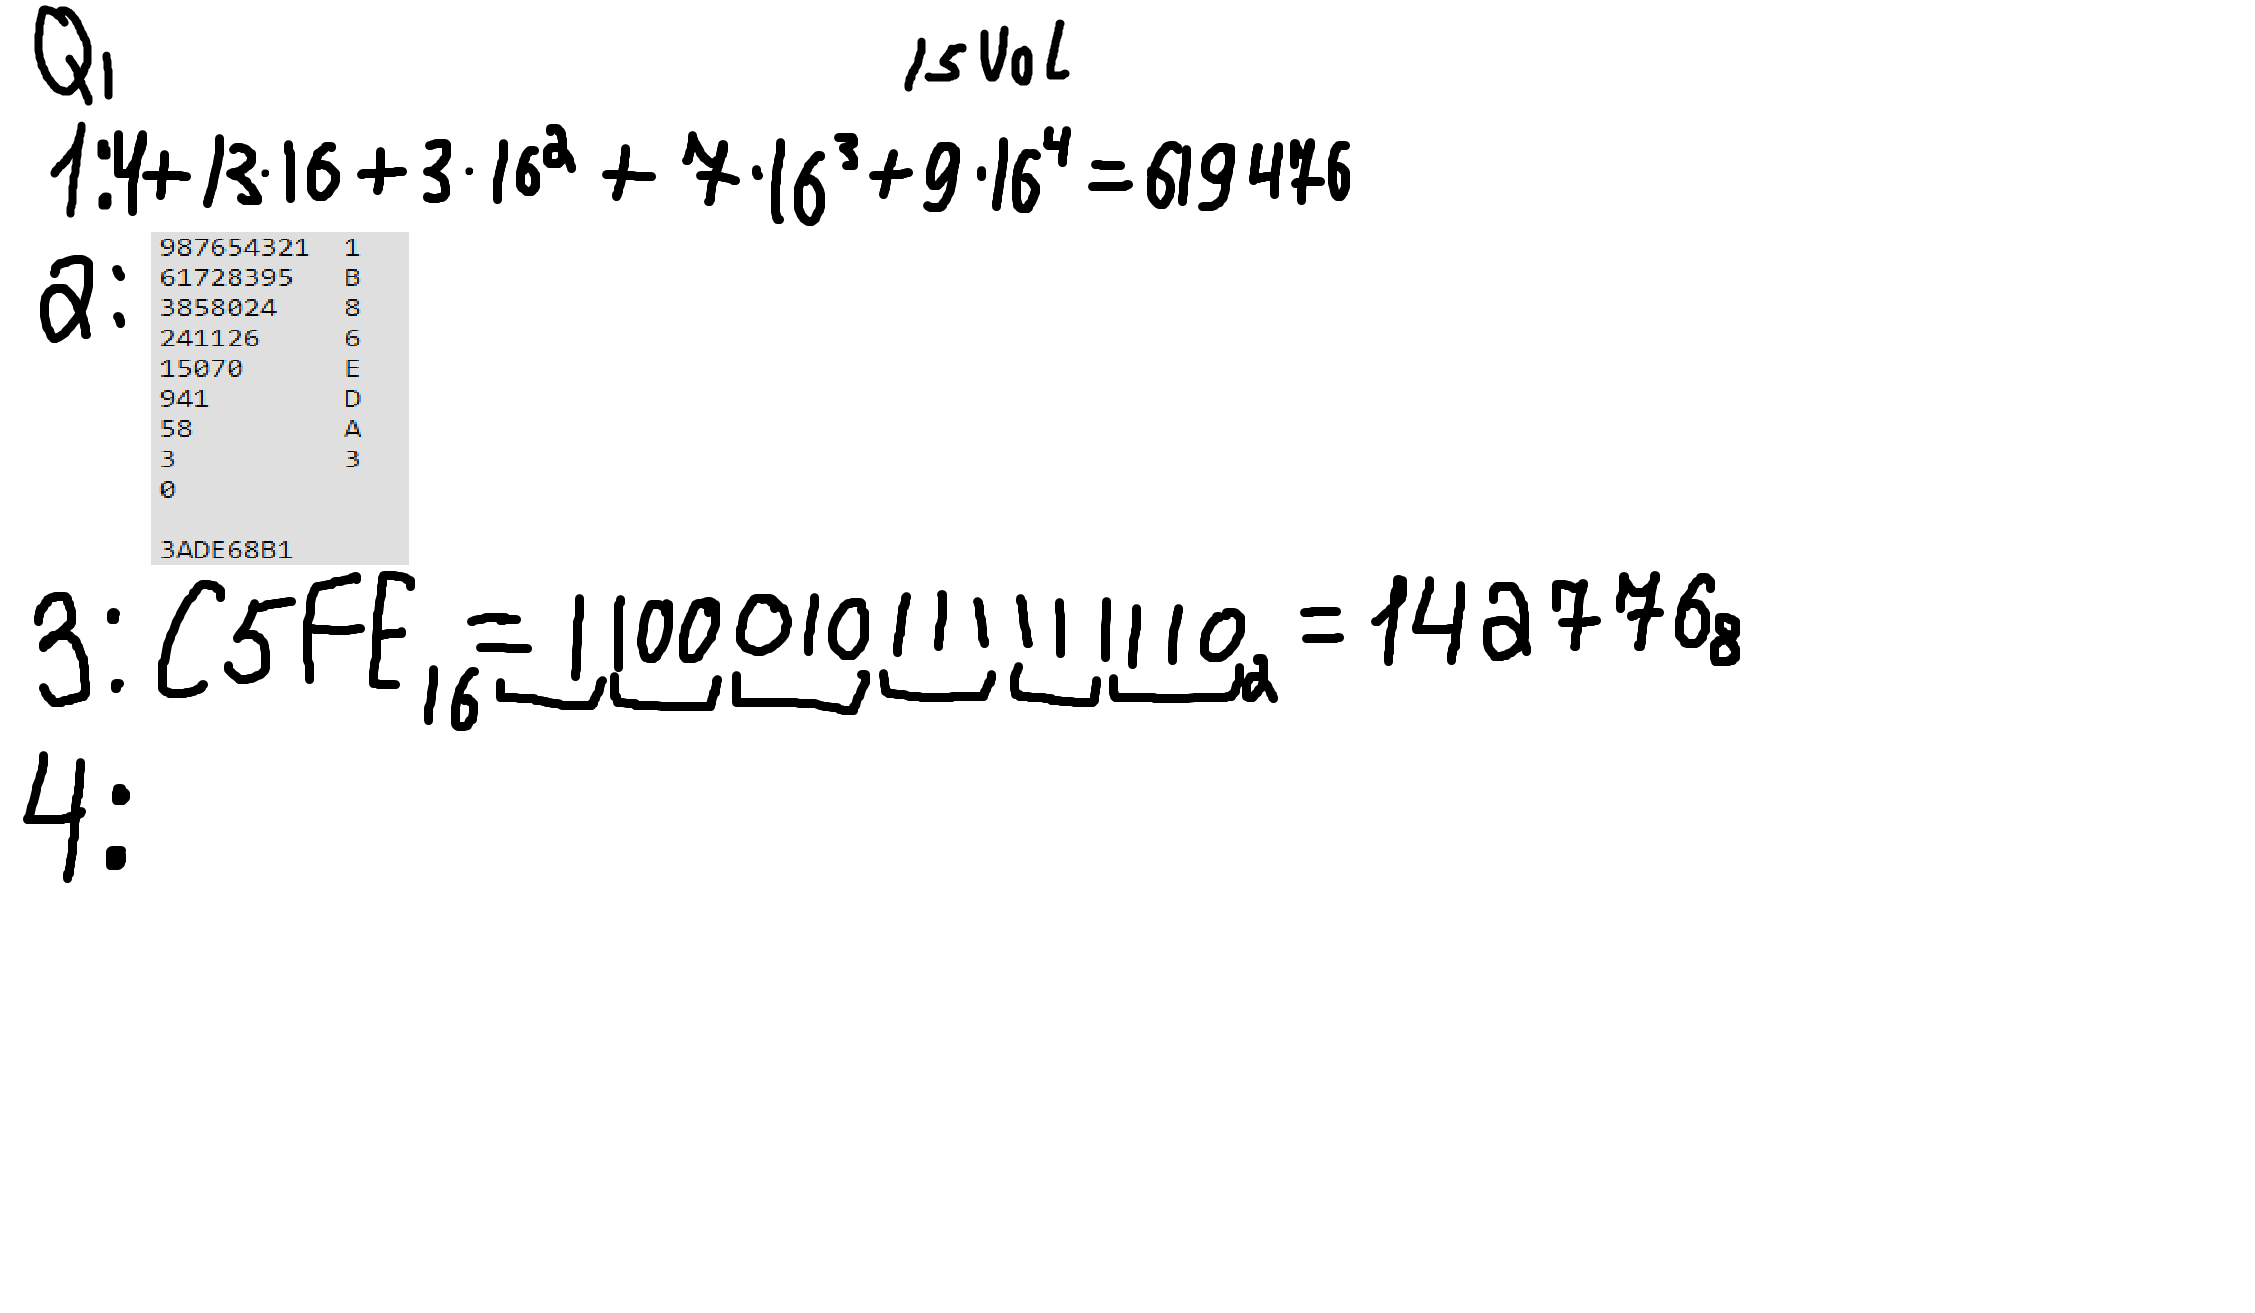 Q1
15 VOL
1: 4 + 13·16 + 3·16² + 7·16³ + 9·16⁴ = 619476
2:
987654321 1
61728395 B
3858024 8
241126 6
15070 E
941 D
58 A
3 3
0
3ADE68B1
3: C5FE₁₆ = 1100010111111110₂ = 142776₈
4: